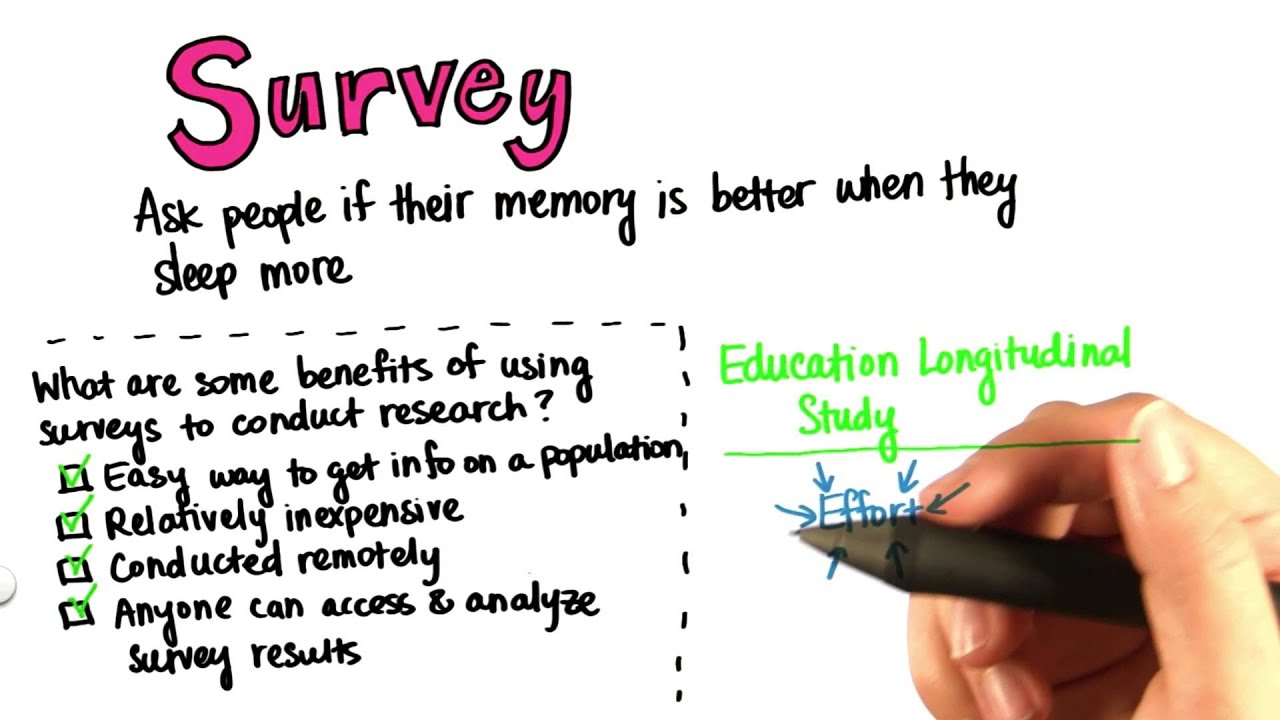 Survey
Ask people if their memory is better when they
sleep more
What are some benefits of using
surveys to conduct research?
Easy way to get info on a population
Relatively inexpensive
Conducted remotely
Anyone can access & analyze
survey results
Education Longitudinal
Study
Effort